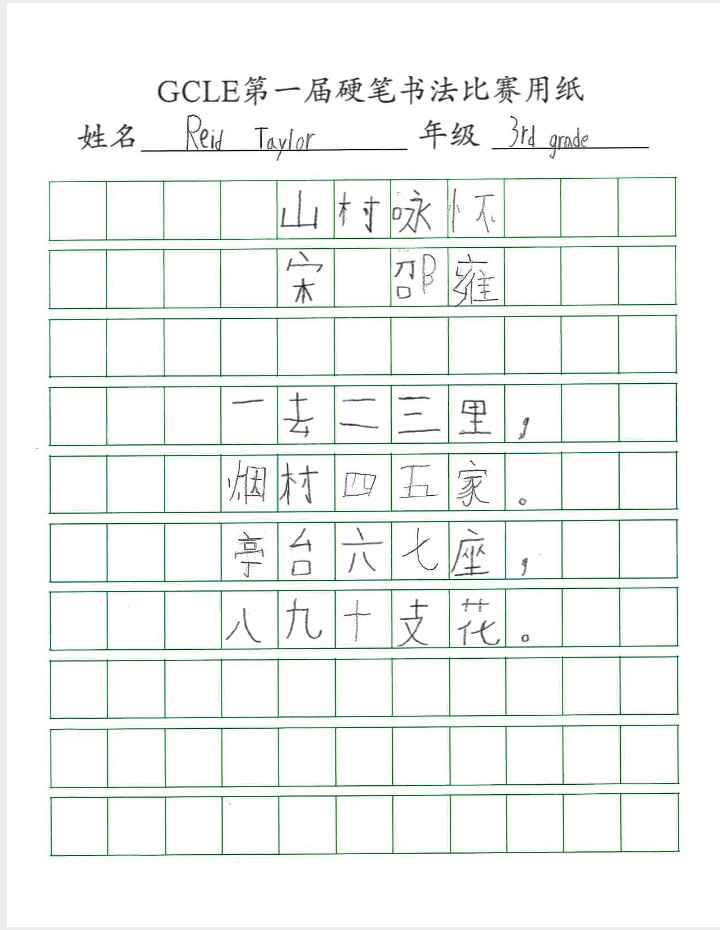 GCLE第一届硬笔书法比赛用纸
姓名 Reid Taylor 年级 3rd grade
山村咏怀
宋 邵雍
一去二三里，
烟村四五家。
亭台六七座，
八九十支花。